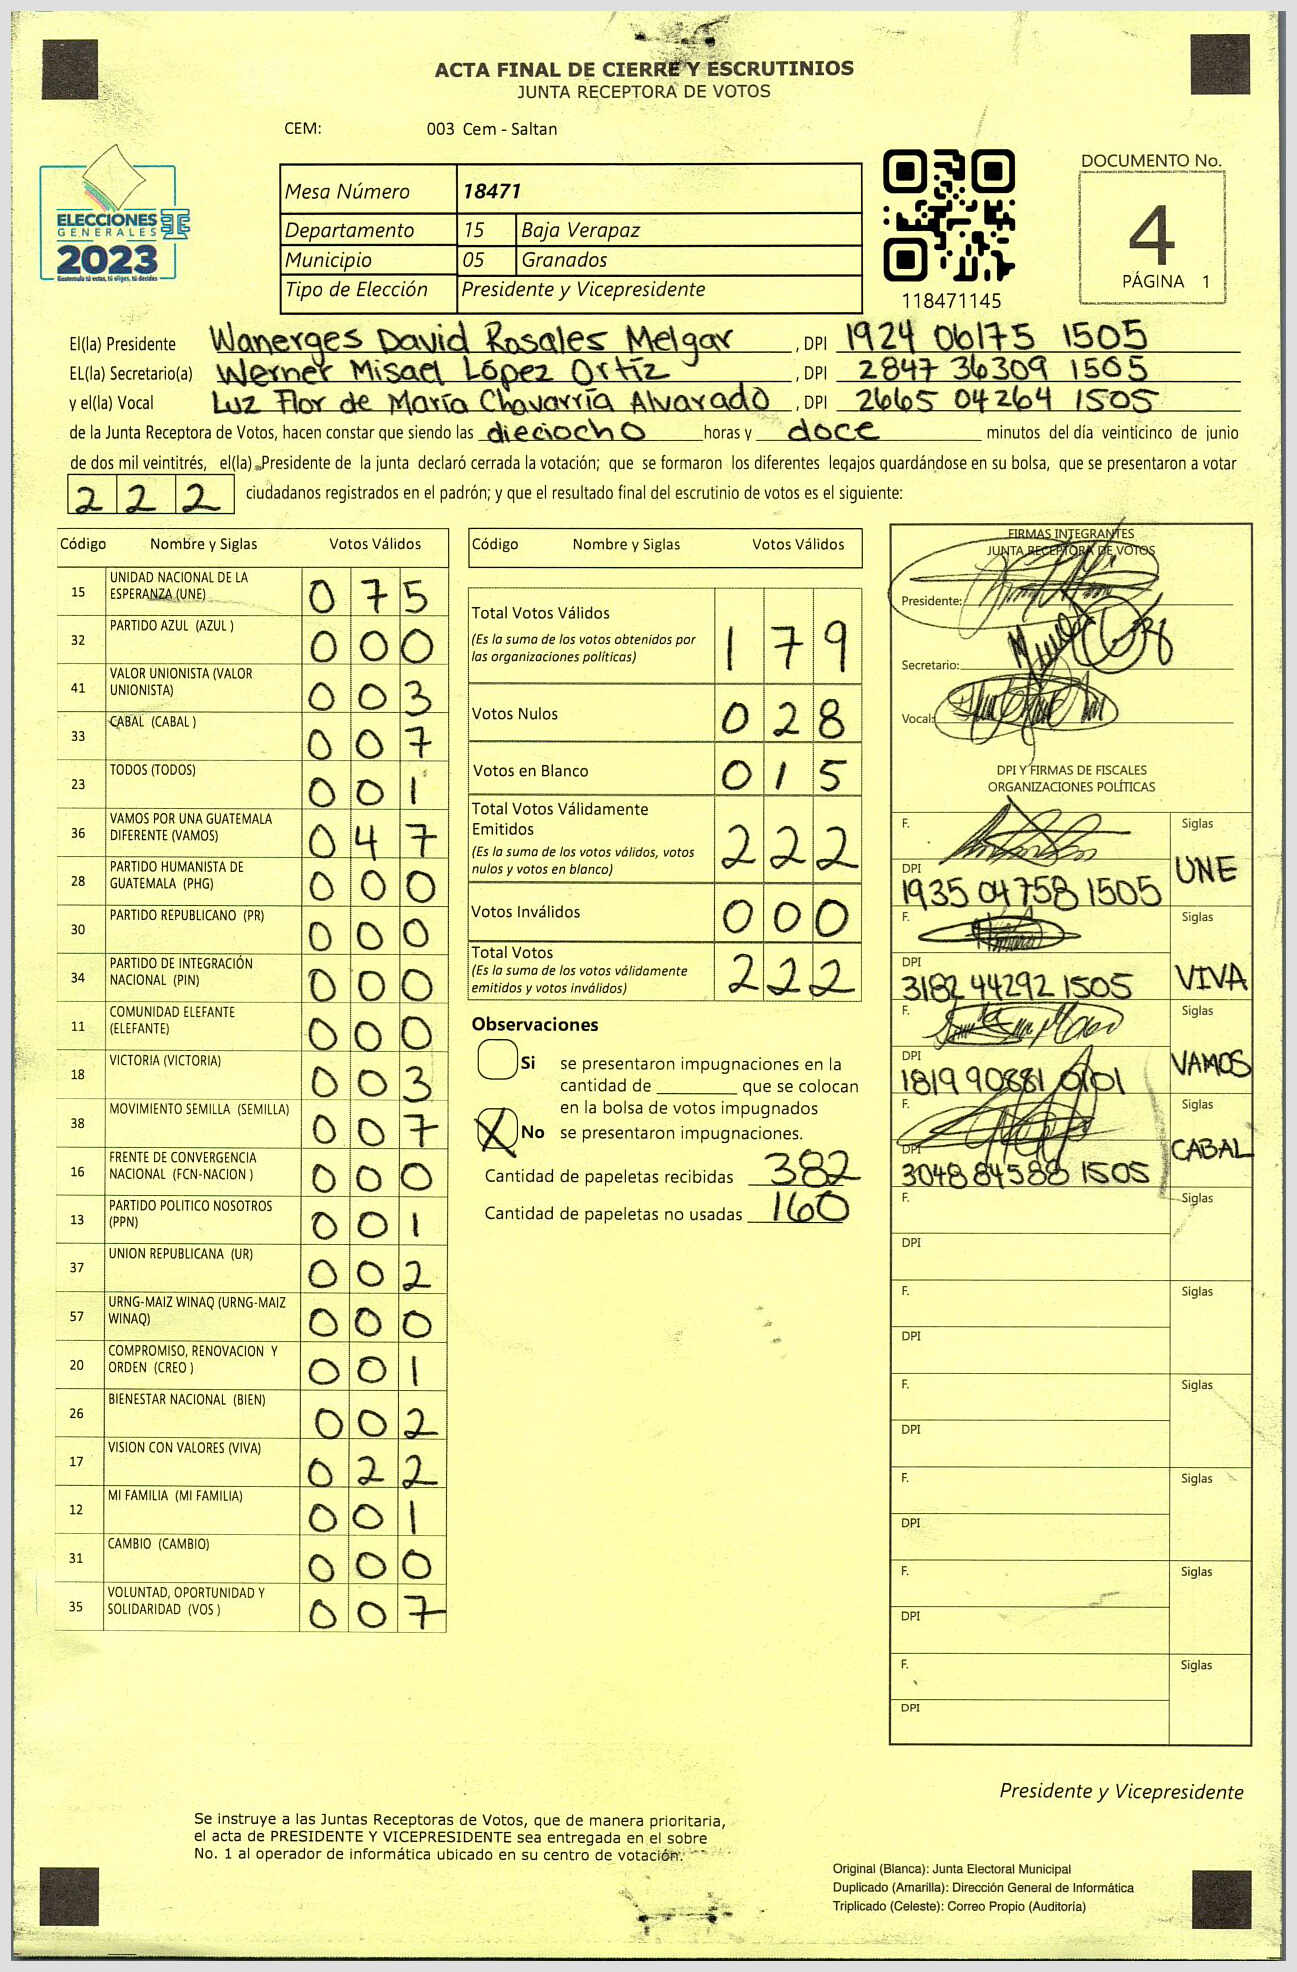 ACTA FINAL DE CIERRE Y ESCRUTINIOS
JUNTA RECEPTORA DE VOTOS
CEM: 003 Cem - Saltan
ELECCIONES
GENERALES
2023
Guatemala tú votas, tú eliges, tú decides
Mesa Número 18471
Departamento 15 Baja Verapaz
Municipio 05 Granados
Tipo de Elección Presidente y Vicepresidente
118471145
DOCUMENTO No.
4
PÁGINA 1
El(la) Presidente Wanerges David Rosales Melgar , DPI 1924 06175 1505
EL(la) Secretario(a) Werner Misael López Ortíz , DPI 2847 36309 1505
y el(la) Vocal Luz Flor de María Chavarría Alvarado , DPI 2665 04264 1505
de la Junta Receptora de Votos, hacen constar que siendo las dieciocho horas y doce minutos del día veinticinco de junio
de dos mil veintitrés, el(la) Presidente de la junta declaró cerrada la votación; que se formaron los diferentes legajos guardándose en su bolsa, que se presentaron a votar
222 ciudadanos registrados en el padrón; y que el resultado final del escrutinio de votos es el siguiente:
Código Nombre y Siglas Votos Válidos
15 UNIDAD NACIONAL DE LA ESPERANZA (UNE) 075
32 PARTIDO AZUL (AZUL ) 000
41 VALOR UNIONISTA (VALOR UNIONISTA) 003
33 CABAL (CABAL ) 007
23 TODOS (TODOS) 001
36 VAMOS POR UNA GUATEMALA DIFERENTE (VAMOS) 047
28 PARTIDO HUMANISTA DE GUATEMALA (PHG) 000
30 PARTIDO REPUBLICANO (PR) 000
34 PARTIDO DE INTEGRACIÓN NACIONAL (PIN) 000
11 COMUNIDAD ELEFANTE (ELEFANTE) 000
18 VICTORIA (VICTORIA) 003
38 MOVIMIENTO SEMILLA (SEMILLA) 007
16 FRENTE DE CONVERGENCIA NACIONAL (FCN-NACION ) 000
13 PARTIDO POLITICO NOSOTROS (PPN) 001
37 UNION REPUBLICANA (UR) 002
57 URNG-MAIZ WINAQ (URNG-MAIZ WINAQ) 000
20 COMPROMISO, RENOVACION Y ORDEN (CREO ) 001
26 BIENESTAR NACIONAL (BIEN) 002
17 VISION CON VALORES (VIVA) 022
12 MI FAMILIA (MI FAMILIA) 001
31 CAMBIO (CAMBIO) 000
35 VOLUNTAD, OPORTUNIDAD Y SOLIDARIDAD (VOS ) 007
Código Nombre y Siglas Votos Válidos
Total Votos Válidos 179
(Es la suma de los votos obtenidos por
las organizaciones políticas)
Votos Nulos 028
Votos en Blanco 015
Total Votos Válidamente
Emitidos 222
(Es la suma de los votos válidos, votos
nulos y votos en blanco)
Votos Inválidos 000
Total Votos 222
(Es la suma de los votos válidamente
emitidos y votos inválidos)
Observaciones
Si se presentaron impugnaciones en la
cantidad de ________ que se colocan
en la bolsa de votos impugnados
X No se presentaron impugnaciones.
Cantidad de papeletas recibidas 382
Cantidad de papeletas no usadas 160
FIRMAS INTEGRANTES
JUNTA RECEPTORA DE VOTOS
Presidente:
Secretario:
Vocal:
DPI Y FIRMAS DE FISCALES
ORGANIZACIONES POLÍTICAS
F. Siglas
DPI UNE
1935 04758 1505
F. Siglas
DPI VIVA
3182 44292 1505
F. Siglas
DPI VAMOS
1819 90881 0101
F. Siglas
DPI CABAL
3048 84588 1505
F. Siglas
DPI
F. Siglas
DPI
F. Siglas
DPI
F. Siglas
DPI
F. Siglas
DPI
F. Siglas
DPI
Presidente y Vicepresidente
Se instruye a las Juntas Receptoras de Votos, que de manera prioritaria,
el acta de PRESIDENTE Y VICEPRESIDENTE sea entregada en el sobre
No. 1 al operador de informática ubicado en su centro de votación.
Original (Blanca): Junta Electoral Municipal
Duplicado (Amarilla): Dirección General de Informática
Triplicado (Celeste): Correo Propio (Auditoría)